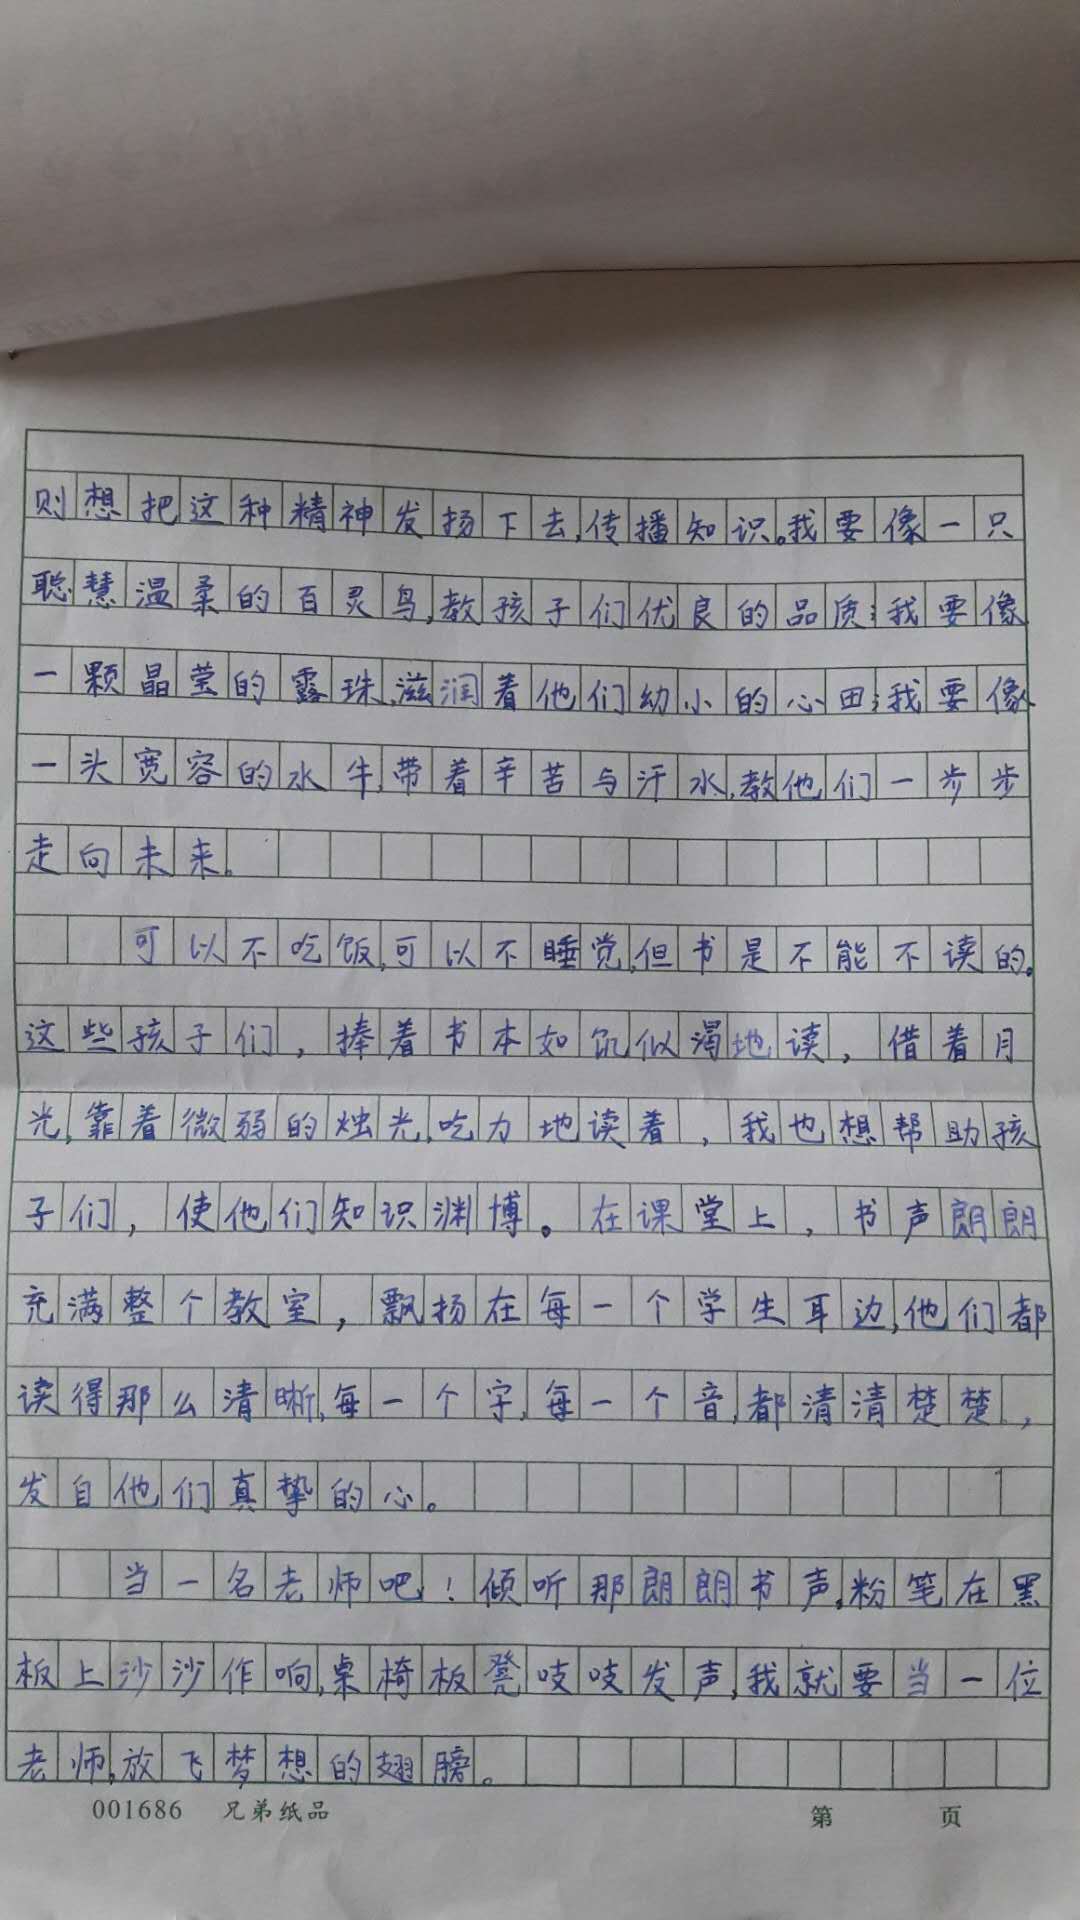 则想把这种精神发扬下去,传播知识。我要像一只
聪慧温柔的百灵鸟,教孩子们优良的品质;我要像
一颗晶莹的露珠,滋润着他们幼小的心田;我要像
一头宽容的水牛,带着辛苦与汗水,教他们一步步
走向未来。
可以不吃饭,可以不睡觉,但书是不能不读的。
这些孩子们，捧着书本如饥似渴地读，借着月
光,靠着微弱的烛光,吃力地读着，我也想帮助孩
子们，使他们知识渊博。在课堂上，书声朗朗
充满整个教室，飘扬在每一个学生耳边,他们都
读得那么清晰,每一个字,每一个音,都清清楚楚，
发自他们真挚的心。
当一名老师吧！倾听那朗朗书声,粉笔在黑
板上沙沙作响,桌椅板凳吱吱发声,我就要当一位
老师,放飞梦想的翅膀。
001686 兄弟纸品 第 页